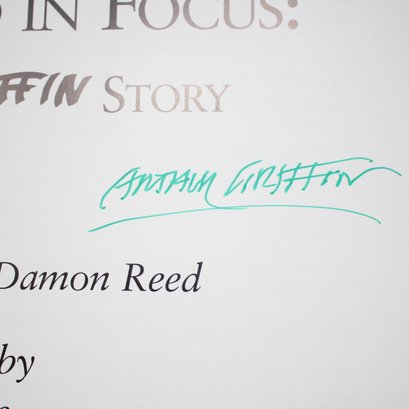 IN FOCUS:
FFIN STORY
GRIFFIN
Damon Reed
by